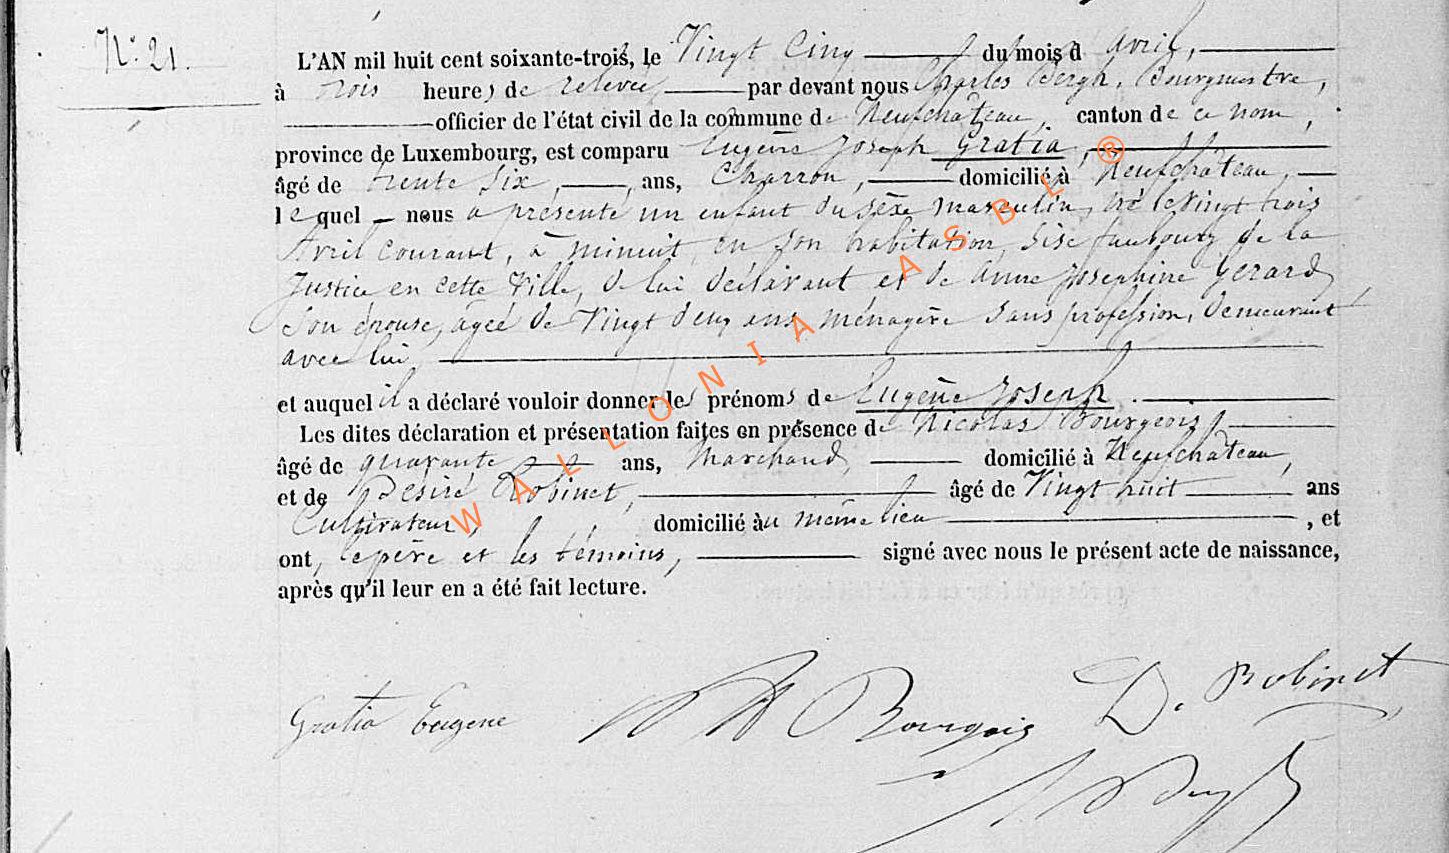 N° 21.
L'AN mil huit cent soixante-trois, le Vingt Cinq du mois d'avril,
à trois heures de relevée, par devant nous Charles Bergh, Bourgmestre,
officier de l'état civil de la commune de Neufchâteau, canton de ce nom,
province de Luxembourg, est comparu Eugène Joseph Gratia,
âgé de trente six, ans, Charron, domicilié à Neufchâteau,
lequel nous a présenté un enfant du sexe masculin, né le Vingt trois
Avril courant, à minuit, en son habitation, sise faubourg de la
Justice en cette Ville, de lui déclarant et de Anne Josephine Gerard,
son épouse, agée de Vingt deux ans ménagère sans profession, demeurant
avec lui,
et auquel il a déclaré vouloir donner les prénoms de Eugène Joseph.
Les dites déclaration et présentation faites en présence de Nicolas Bourgeois,
âgé de quarante ans, Marchand, domicilié à Neufchâteau,
et de Désiré Robinet, âgé de Vingt huit ans
Cultivateur, domicilié au même lieu, et
ont, le père et les témoins, signé avec nous le présent acte de naissance,
après qu'il leur en a été fait lecture.
Gratia Eugene Bourgois D. Robinet
WALLONIA ASBL ®